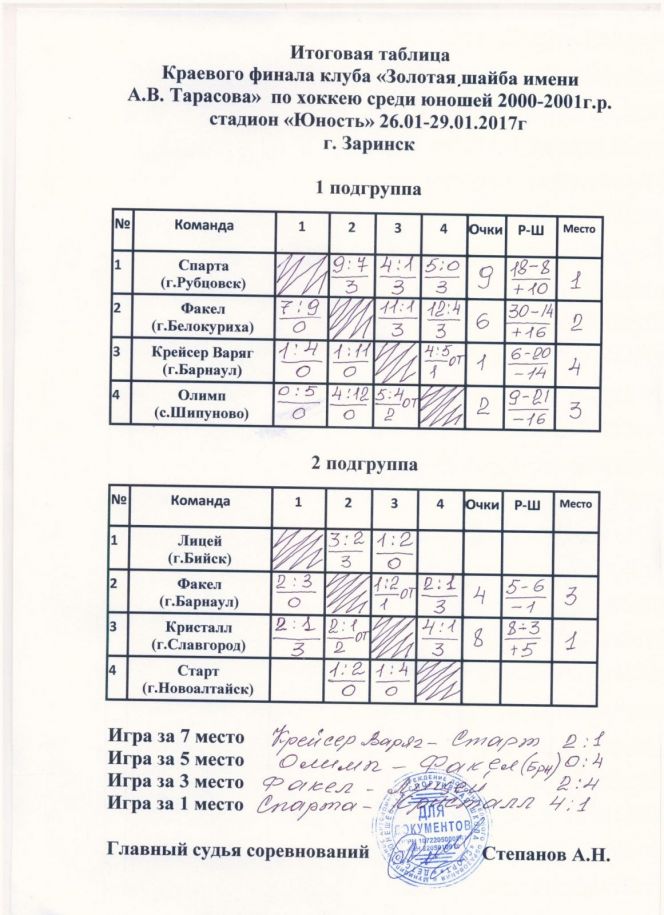 Итоговая таблица
Краевого финала клуба «Золотая шайба имени
А.В. Тарасова» по хоккею среди юношей 2000-2001г.р.
стадион «Юность» 26.01-29.01.2017г
г. Заринск
1 подгруппа
№ Команда 1 2 3 4 Очки Р-Ш Место
1 Спарта (г.Рубцовск) 9:7 3 4:1 3 5:0 3 9 18-8 +10 1
2 Факел (г.Белокуриха) 7:9 0 11:1 3 12:4 3 6 30-14 +16 2
3 Крейсер Варяг (г.Барнаул) 1:4 0 1:11 0 4:5 от 1 1 6-20 -14 4
4 Олимп (с.Шипуново) 0:5 0 4:12 0 5:4 от 2 2 9-21 -16 3
2 подгруппа
№ Команда 1 2 3 4 Очки Р-Ш Место
1 Лицей (г.Бийск) 3:2 3 1:2 0
2 Факел (г.Барнаул) 2:3 0 1:2 от 1 2:1 3 4 5-6 -1 3
3 Кристалл (г.Славгород) 2:1 3 2:1 от 2 4:1 3 8 8-3 +5 1
4 Старт (г.Новоалтайск) 1:2 0 1:4 0
Игра за 7 место Крейсер Варяг - Старт 2:1
Игра за 5 место Олимп - Факел (Брн) 0:4
Игра за 3 место Факел - Лицей 2:4
Игра за 1 место Спарта - Кристалл 4:1
ДЛЯ
ДОКУМЕНТОВ
Главный судья соревнований Степанов А.Н.